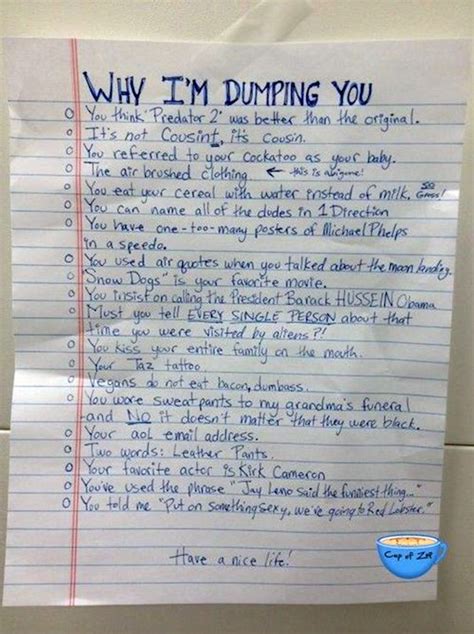 WHY I'M DUMPING YOU
You think 'Predator 2' was better than the original.
It's not Cousint, it's cousin.
You referred to your cockatoo as your baby.
The air brushed clothing ← this is a biggie!
You eat your cereal with water instead of milk. SO Gross!
You can name all of the dudes in 1 Direction
You have one-too-many posters of Michael Phelps
in a speedo.
You used air quotes when you talked about the moon landing.
"Snow Dogs" is your favorite movie.
You insist on calling the President Barack HUSSEIN Obama
Must you tell EVERY SINGLE PERSON about that
time you were visited by aliens?!
You kiss your entire family on the mouth.
Your Taz tattoo.
Vegans do not eat bacon, dumbass.
You wore sweatpants to my grandma's funeral
-and NO it doesn't matter that they were black.
Your aol email address.
Two words: Leather Pants.
Your favorite actor is Kirk Cameron
You've used the phrase "Jay Leno said the funniest thing..."
You told me "Put on something sexy, we're going to Red Lobster."
Have a nice life!
Cup of Zup